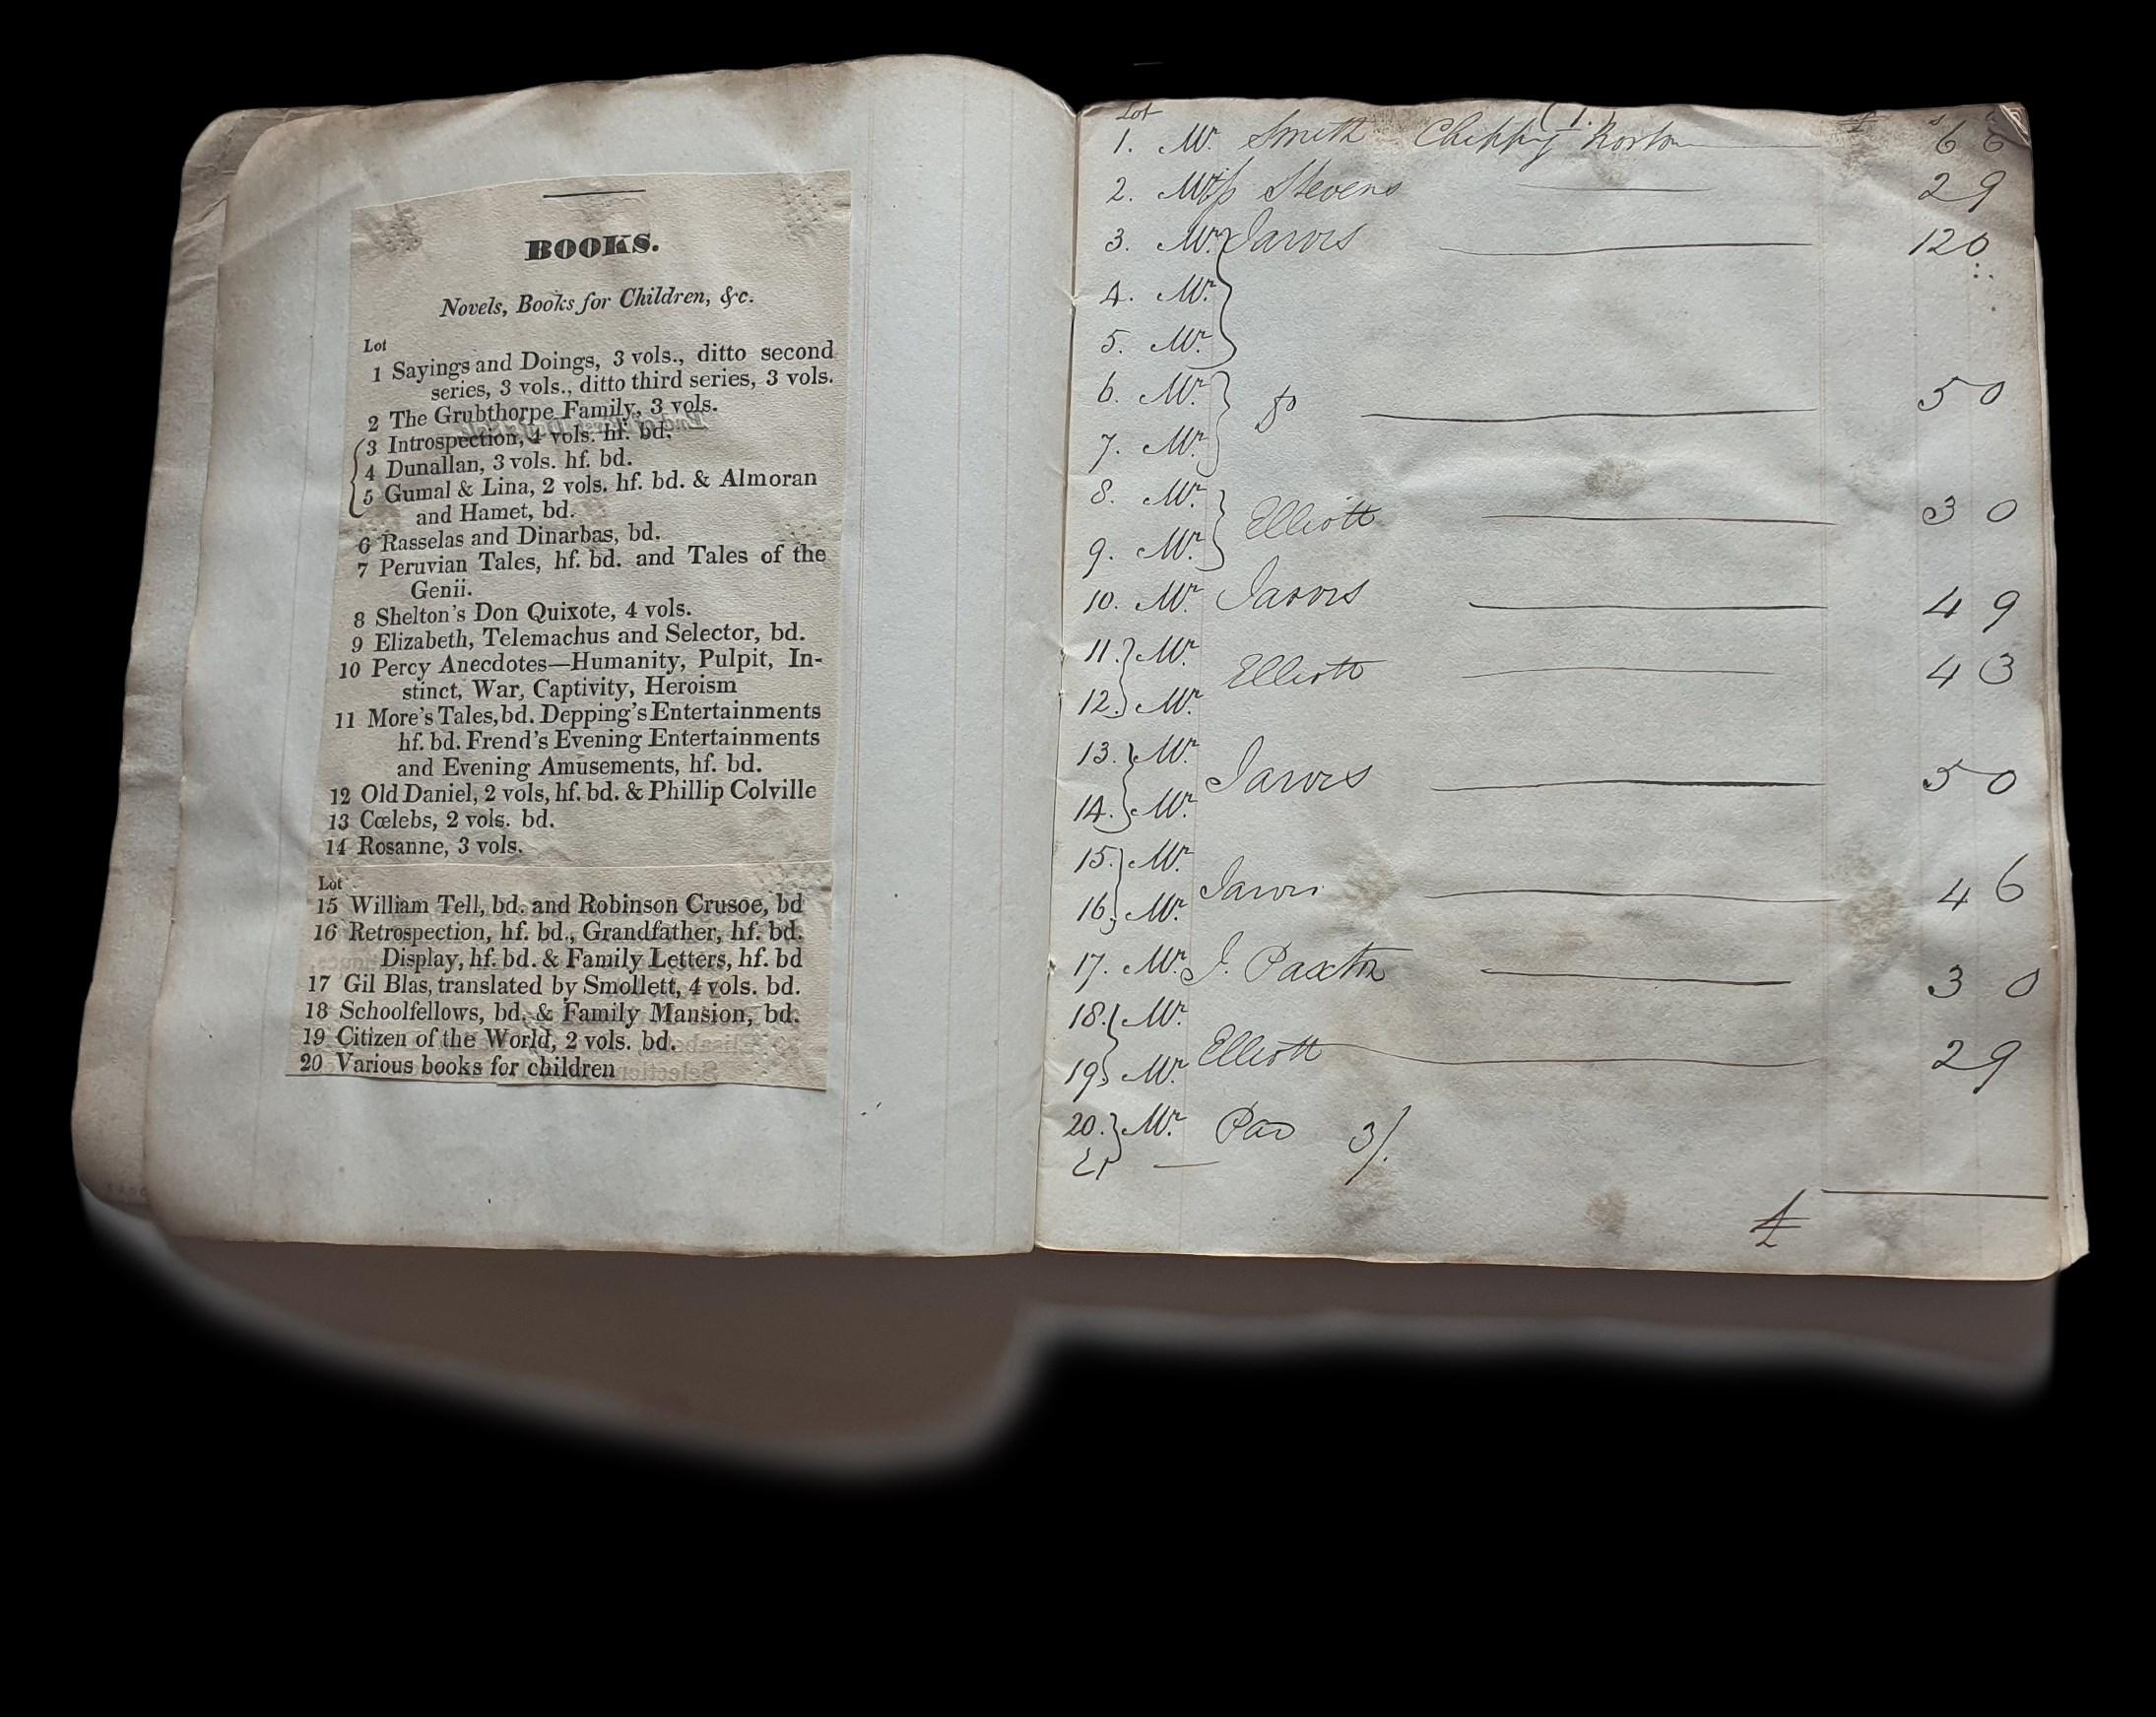 BOOKS.
Novels, Books for Children, &c.
Lot
1 Sayings and Doings, 3 vols., ditto second
series, 3 vols., ditto third series, 3 vols.
2 The Grubthorpe Family, 3 vols.
3 Introspection, 4 vols. hf. bd.
4 Dunallan, 3 vols. hf. bd.
5 Gumal & Lina, 2 vols. hf. bd. & Almoran
and Hamet, bd.
6 Rasselas and Dinarbas, bd.
7 Peruvian Tales, hf. bd. and Tales of the
Genii.
8 Shelton's Don Quixote, 4 vols.
9 Elizabeth, Telemachus and Selector, bd.
10 Percy Anecdotes—Humanity, Pulpit, In-
stinct, War, Captivity, Heroism
11 More's Tales, bd. Depping's Entertainments
hf. bd. Frend's Evening Entertainments
and Evening Amusements, hf. bd.
12 Old Daniel, 2 vols, hf. bd. & Phillip Colville
13 Cœlebs, 2 vols. bd.
14 Rosanne, 3 vols.
Lot
15 William Tell, bd. and Robinson Crusoe, bd
16 Retrospection, hf. bd., Grandfather, hf. bd.
Display, hf. bd. & Family Letters, hf. bd
17 Gil Blas, translated by Smollett, 4 vols. bd.
18 Schoolfellows, bd. & Family Mansion, bd.
19 Citizen of the World, 2 vols. bd.
20 Various books for children
(1.)
Lot
1. Mr. Smith Chippg Norton 6 6
2. Stevens 2 9
3. Mr. Jarvis 12 0
4. Mr.
5. Mr.
6. Mr. do 5 0
7. Mr.
8. Mr. Elliott 3 0
9. Mr.
10. Mr. Jarvis 4 9
11. Mr. Elliott 4 3
12. Mr.
13. Mr. Jarvis 5 0
14. Mr.
15. Mr. Jarvis 4 6
16. Mr.
17. Mr. J. Paxton 3 0
18. Mr. Elliott 2 9
19. Mr.
20. Mr. Pao 3/.
21 —
£